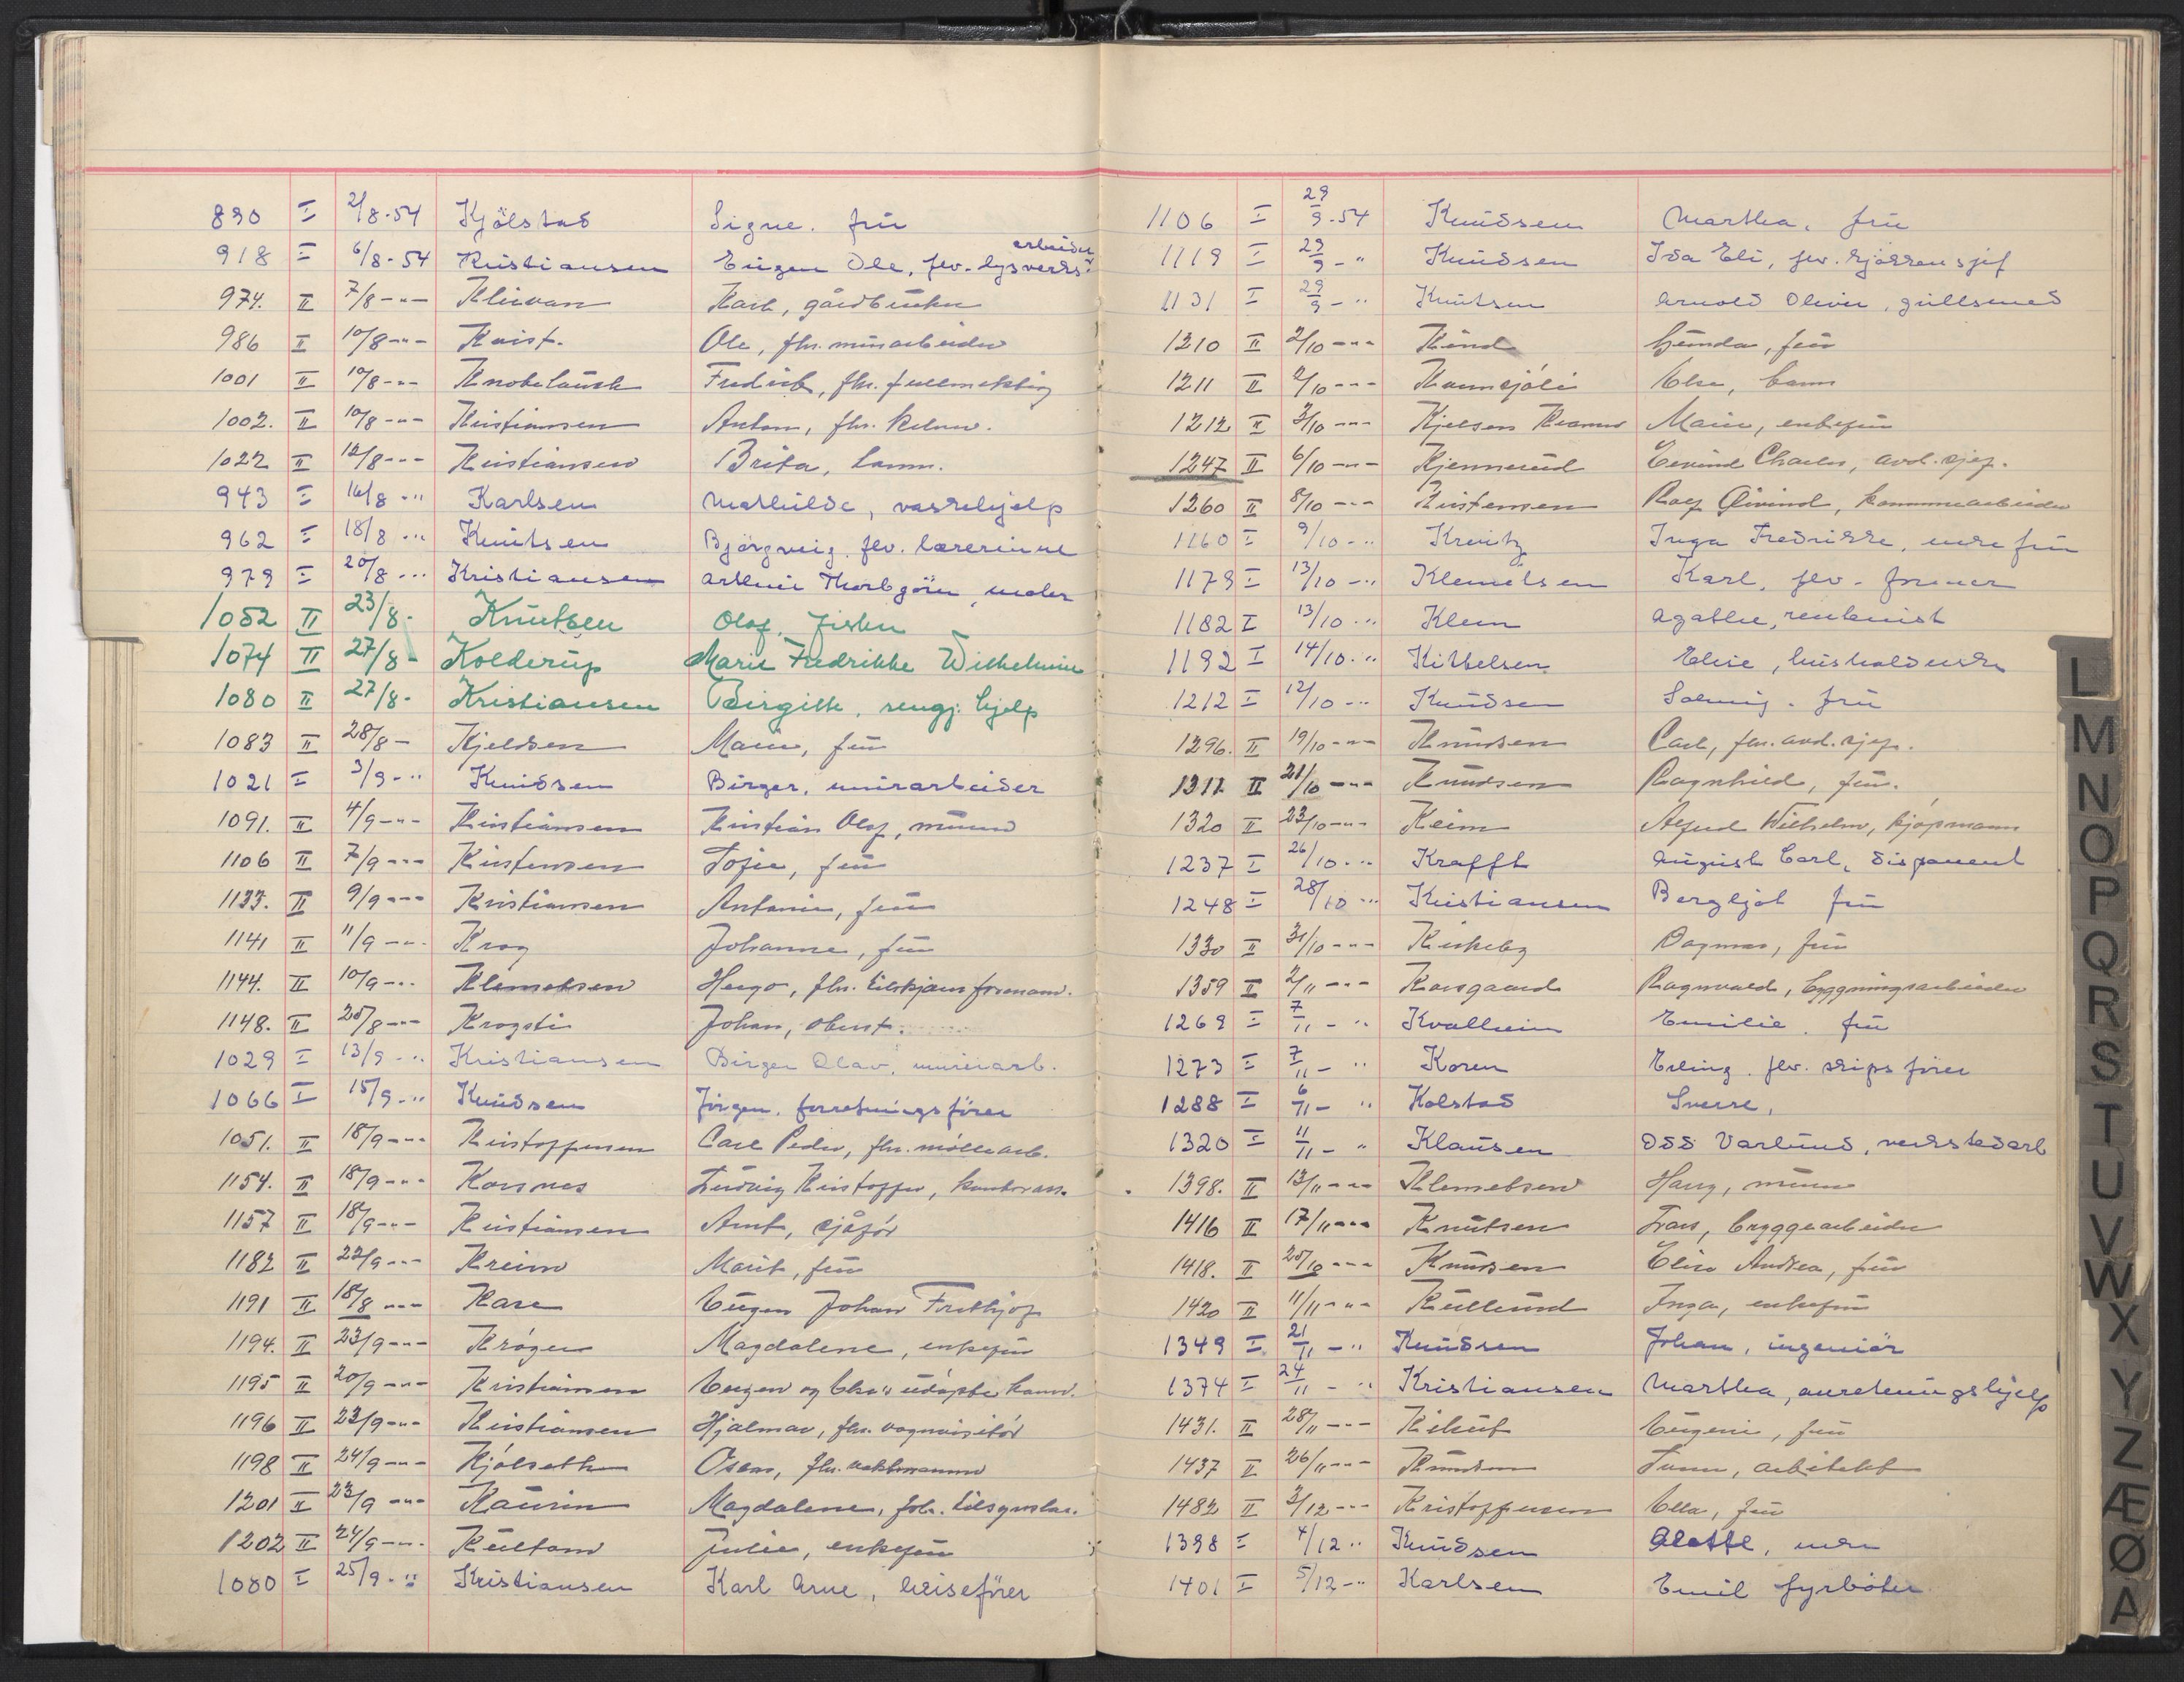 890 I 2/8-54 Kjölstad Signe. frú
918 I 6/8-54 Kristiansen Eugen Ole, fev. lysverks arbeider
974. II 7/8 -"- Klievan Karl, gårdbruker
986 II 10/8 -"- Kvist. Ole, fhv. murarbeider
1001 II 10/8 -"- Knobelauch Fredrik, fhv. fullmektig
1002. II 10/8 -"- Kristiansen Anton, fhv. kelner.
1022 II 12/8 -"- Kristiansen Brita, barn.
943 I 14/8 -" Karlsen Mathilde, vaskehjelp
962 I 18/8 -" Knutsen Bjørgveig. fev. lærerinne
979 I 20/8 -" Kristiansen Arthur Thorbjörn, maler
1052 II 23/8- Knutsen Olaf. fisker
1074 II 27/8- Kolderup Marie Fredrikke Wilhelmine
1080 II 27/8- Kristiansen Birgitte, rengj. hjelp
1083 II 28/8- Kjeldsen Marie, frú
1021 I 3/9-" Knudsen Birger, murarbeider
1091. II 4/9 -"- Kristiansen Kristian Olaf, murer
1106 II 7/9 -"- Kristensen Sofie, frú
1133. II 9/9 -"- Kristiansen Antonie, frú
1141 II 11/9 -"- Krog Johanne, frú
1144. II 10/9 -"- Klemetsen Hugo, fhv. formann.
1148. II 25/8 -"- Krogsti Johan, oberst.
1029 I 13/9 -" Kristiansen Birger Olav, murerarb.
1066 I 15/9 -" Knudsen Jörgen. forretningsförer
1051. II 18/9 -"- Kristoffersen Carl Peder, fhv. möllearb.
1154. II 18/9 -"- Korsnes Ludvig Kristoffer, kontorass.
1157 II 18/9 -"- Kristiansen Arnt, sjåfør
1182 II 22/9 -"- Kreim Marit, frú
1191 II 18/8 -"- Kase Eugen Johan Frithjof
1194. II 23/9 -"- Krøger Magdalene, enkefrú
1195 II 20/9 -"- Kristiansen Eugen og Elsa's udøpte barn.
1196 II 23/9 -"- Kristiansen Hjalmar, fhv. vognvisitør
1198 II 24/9 -"- Kjølseth Oscar, fhv. vaktmann
1201 II 23/9 -"- Kaurin Magdalene, fhv.
1202 II 24/9 -"- Kultom Julie, enkefrú
1080 I 25/9 -" Kristiansen Karl Arne, heiseförer
1106 I 29/9-54 Knudsen Martha, frú
1119 I 29/9 -" Knudsen Ida Eli, fev. kjökkensjef
1131 I 29/9 -" Knutsen Arnold Oliver, gullsmed
1210 II 2/10 -"- Kind Gunda, frú
1211 II 2/10 -"- Else, barn
1212 II 3/10 -"- Kjelsen Kramer Marie, enkefrú
1247 II 6/10 -"- Kjennerud Eivind Charles, avd. sjef.
1260 II 8/10 -"- Kristensen Rolf Øivind, kommunearbeider
1160 I 9/10 -" Kreutz Inga Fredrikke, enkefrú
1179 I 13/10 -" Klemetsen Karl, fev. former
1182 I 13/10 -" Klem Agathe, rentenist
1192 I 14/10 -" Kittelsen Elise, husholderske
1212 I 12/10 -" Knudsen Solveig. frú
1296. II 19/10 -"- Knudsen Carl, fhv. avd. sjef.
1311 II 21/10 -"- Knudsen Ragnhild, frú.
1320 II 23/10 -"- Keim Alfred Wilhelm, kjøpmann
1237 I 26/10 -" Krafft August Carl, disponent
1248 I 28/10 -" Kristiansen Bergljot frú
1330 II 31/10 -"- Kirkeby Dagmar, frú
1359 II 2/11 -"- Korsgaard Ragnvald, bygningsarbeider
1269 I 7/11 -" Kvalheim Emilie. frú
1273 I 7/11 -" Koren Erling. fev. skipsförer
1288 I 6/11 -" Kolstad Sverre,
1320 I 11/11 -" Klausen Odd Varlund, verkstedarb
1398. II 13/11 -"- Klemetsen Harry, murer
1416 II 17/11 -"- Knutsen Frans, bryggearbeider
1418. II 25/10 -"- Knudsen Elise Andrea, frú
1420 II 11/11 -"- Kullund Inga, enkefrú
1349 I 21/11 -" Knudsen Johan, ingeniör
1374 I 24/11 -" Kristiansen Martha, anretningshjelp
1431. II 28/11 -"- Kikut Eugenie, frú
1437 II 26/11 -"- Knudsen arkitekt
1482 II 3/12 -"- Kristoffersen Ella, frú
1398 I 4/12 -" Knudsen Alette, enke
1401 I 5/12 -" Karlsen Emil fyrböter
L
M
N
O
P
Q
R
S
T
U
V
W
X
Y
Z
Æ
Ø
A